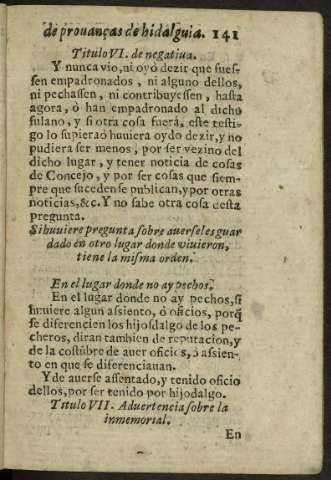 de prouanças de hidalguia. 141
Titulo VI. de negatiua.
Y nunca vio, ni oyó dezir que fuesſ-
ſen empadronados, ni alguno dellos,
ni pechaſſen, ni contribuyeſſen, haſta
agora, ò han empadronado al dicho
fulano, y ſi otra coſa fuera, eſte teſti-
go lo ſupiera ò huuiera oydo dezir, y no
pudiera ſer menos, por ſer vezino del
dicho lugar, y tener noticia de coſas
de Concejo, y por ſer coſas que ſiem-
pre que ſuceden ſe publican, y por otras
noticias, &c. Y no ſabe otra coſa deſta
pregunta.
Si huuiere pregunta ſobre auerſeles guar
dado en otro lugar donde viuieron,
tiene la miſma orden.
En el lugar donde no ay pechos.
En el lugar donde no ay pechos, ſi
huuiere algun aſsiento, ò oficios, porq̃
ſe diferencien los hijoſdalgo de los pe-
cheros, diran tambien de reputacion, y
de la coſtũbre de auer oficios, ò aſsien-
to en que ſe diferenciauan.
Y de auerſe aſſentado, y tenido oficio
dellos, por ſer tenido por hijodalgo.
Titulo VII. Aduertencia ſobre la
inmemorial.
En